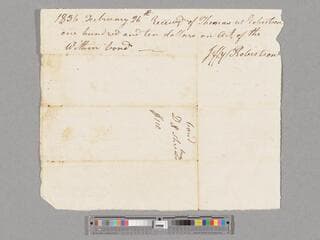 1836 February 26th Received of Thomas W Robertson
one hundred and ten dollars on act of the
Within bond
Jffry Robertson
bond
$110